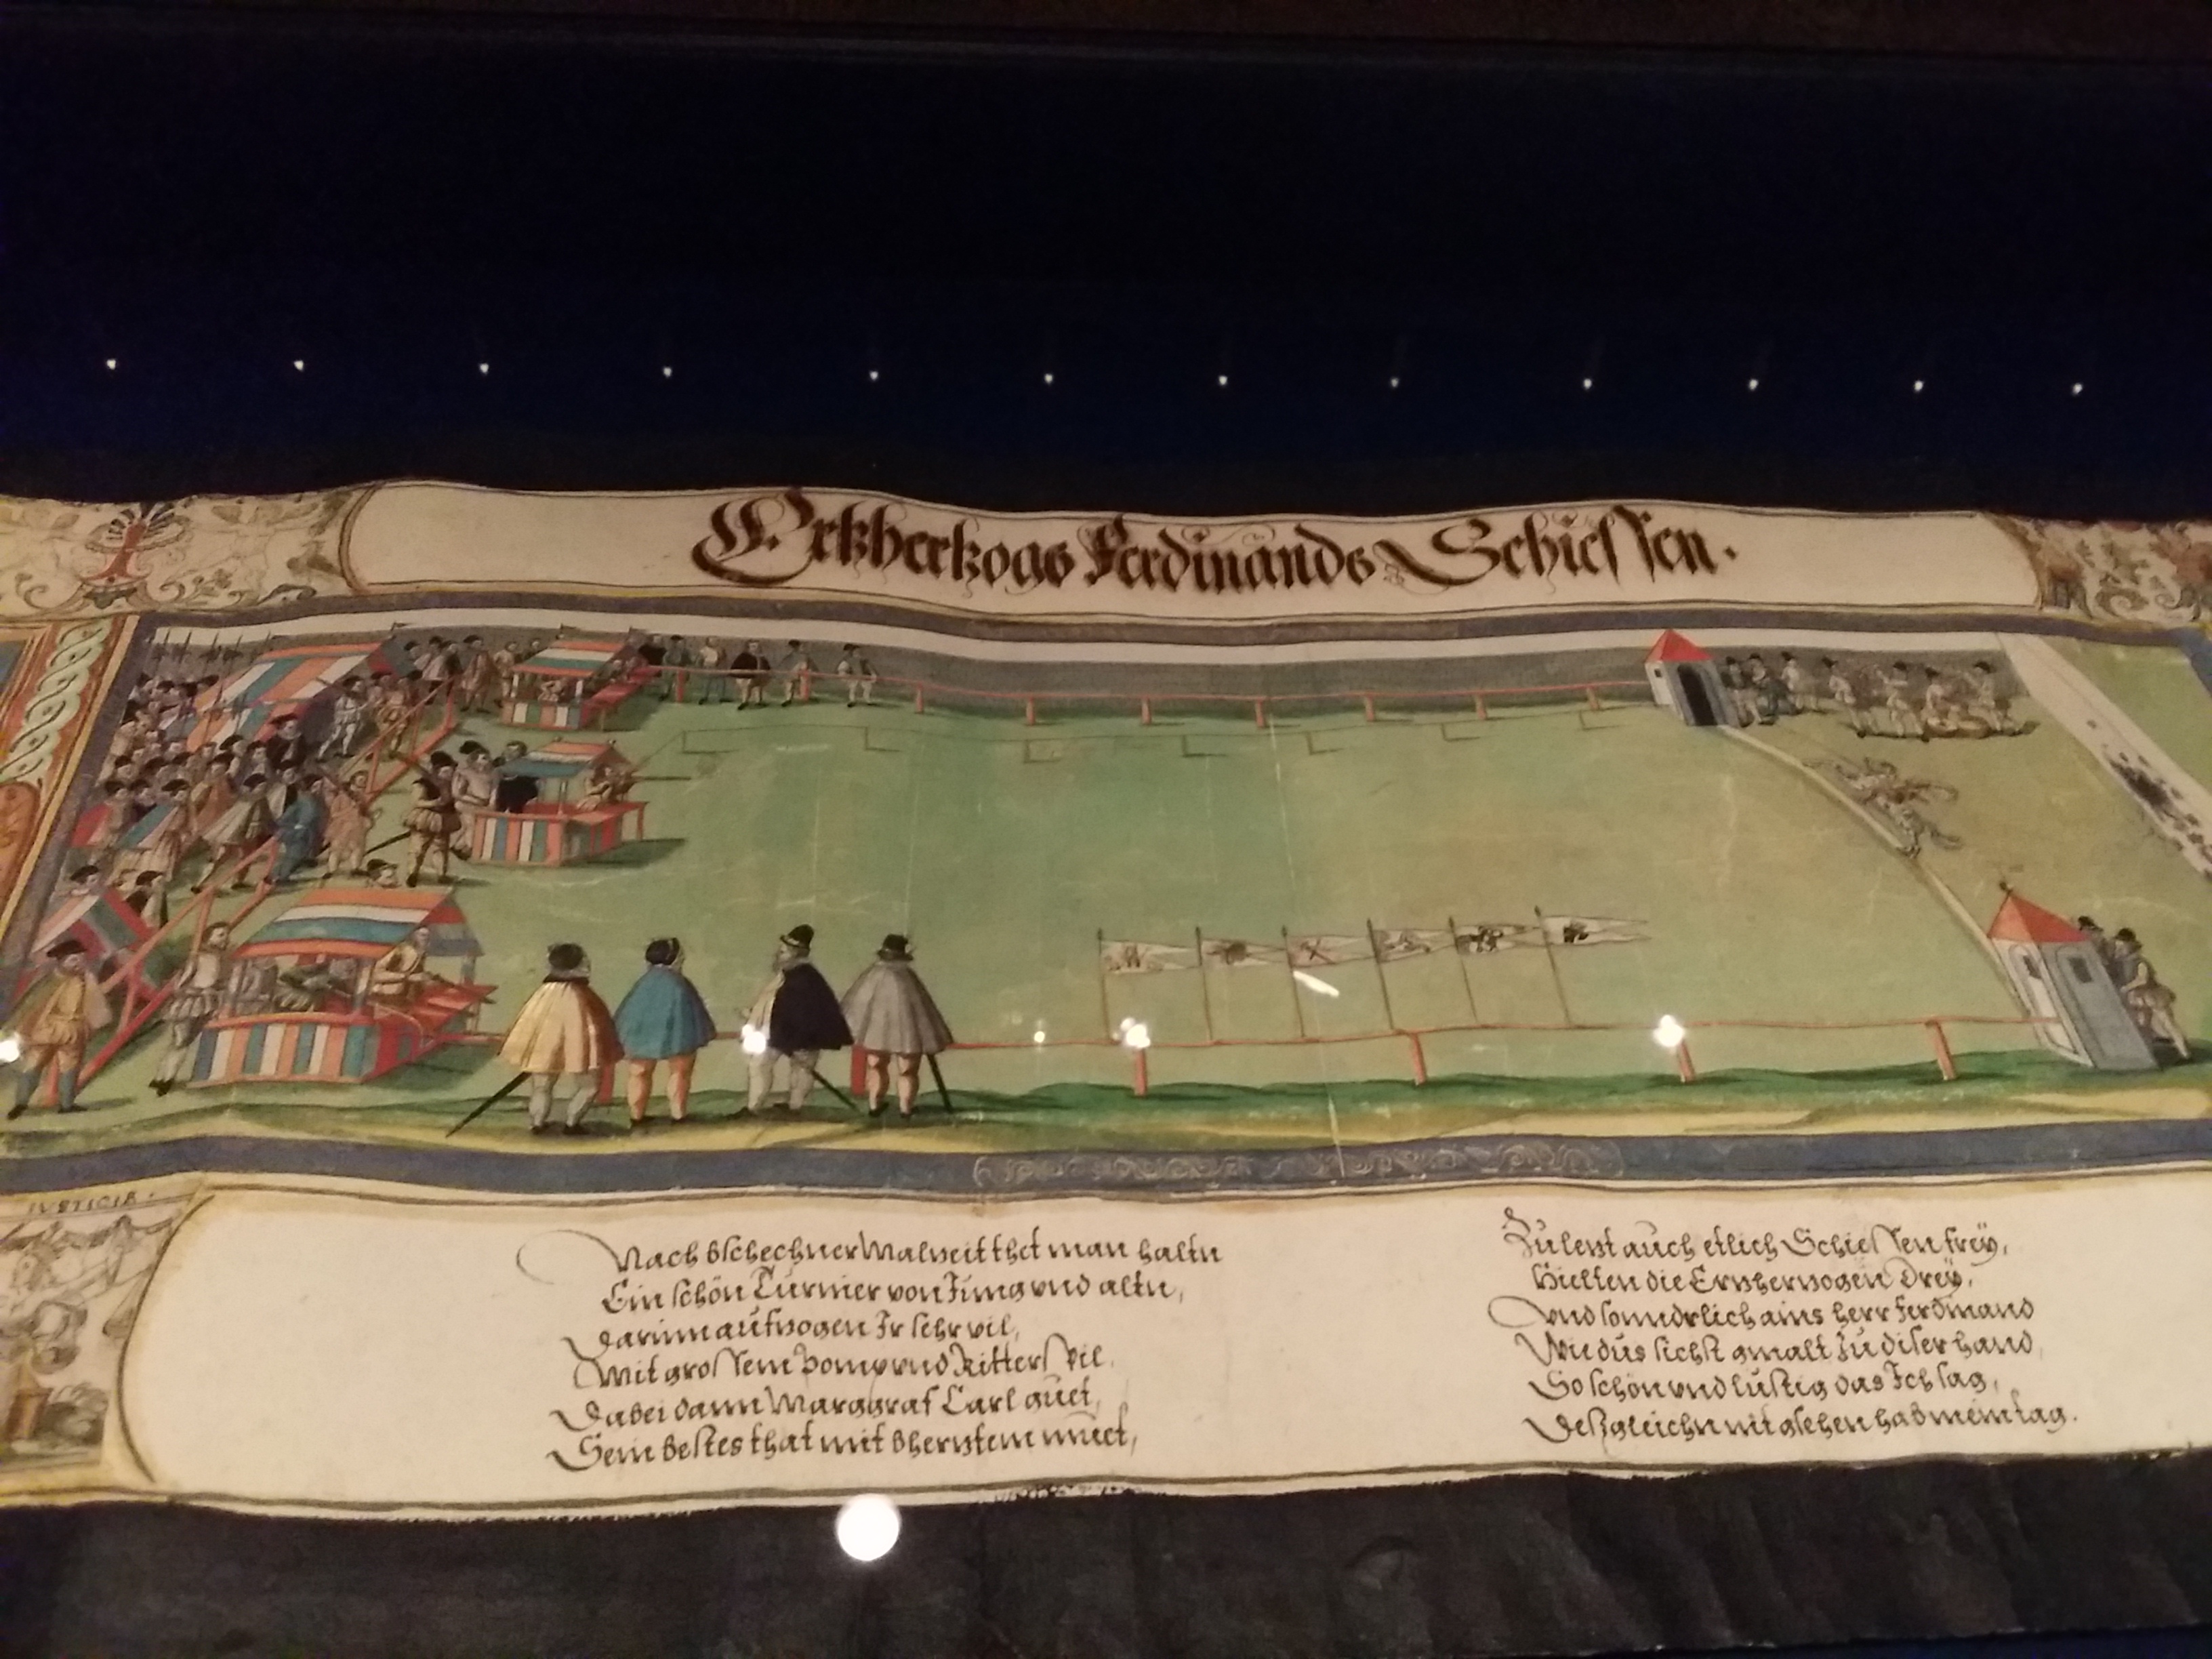 Ertzhertzogs Ferdinands Schiessen.
IVSTICIA.
Nach bschechner Malzeit thet man haltn
Ein schön Turnier von Jung vnd altn,
Darinn aufzogen Ir sehr vil,
Mit grossem Pomp vnd Ritterspil.
Dabei dann Marggraf Carl guet,
Sein bestes that mit bhertztem muet,
Zuletzt auch etlich Schiessen freÿ,
Hielten die Ertzhertzogen dreÿ,
Vnd sonndrlich ains herr Ferdinand
Wie dus sichst gmalt zu diser hand,
So schön vnd lustig das Ich sag,
Deßgleichn nit gsehen hab mein tag.